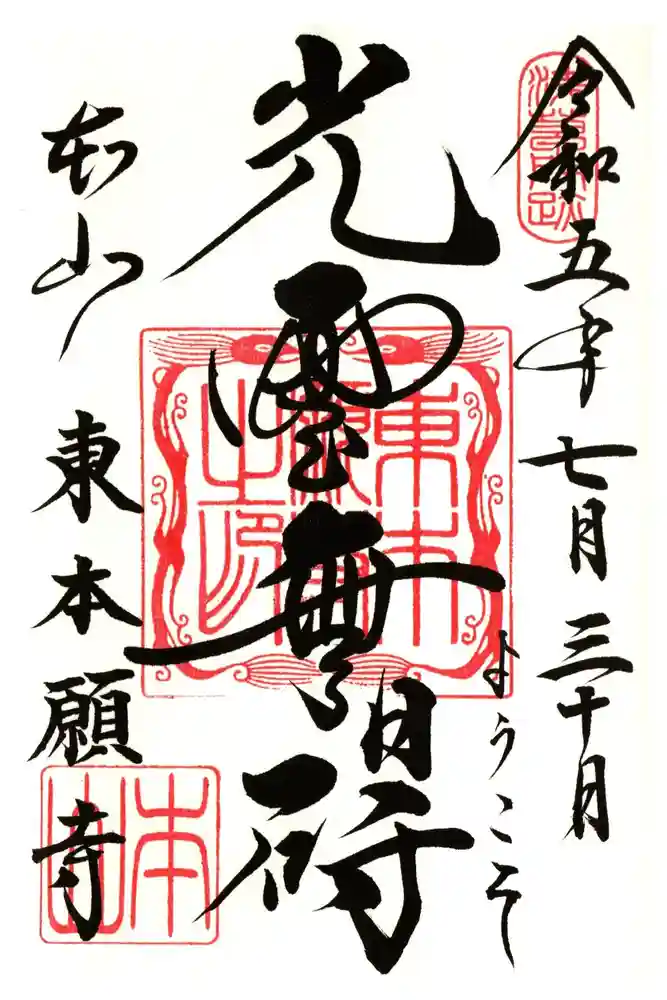 令和五年七月三十日
ようこそ
光雲無碍
本山
東本願寺
東本
願寺
之印
本
山